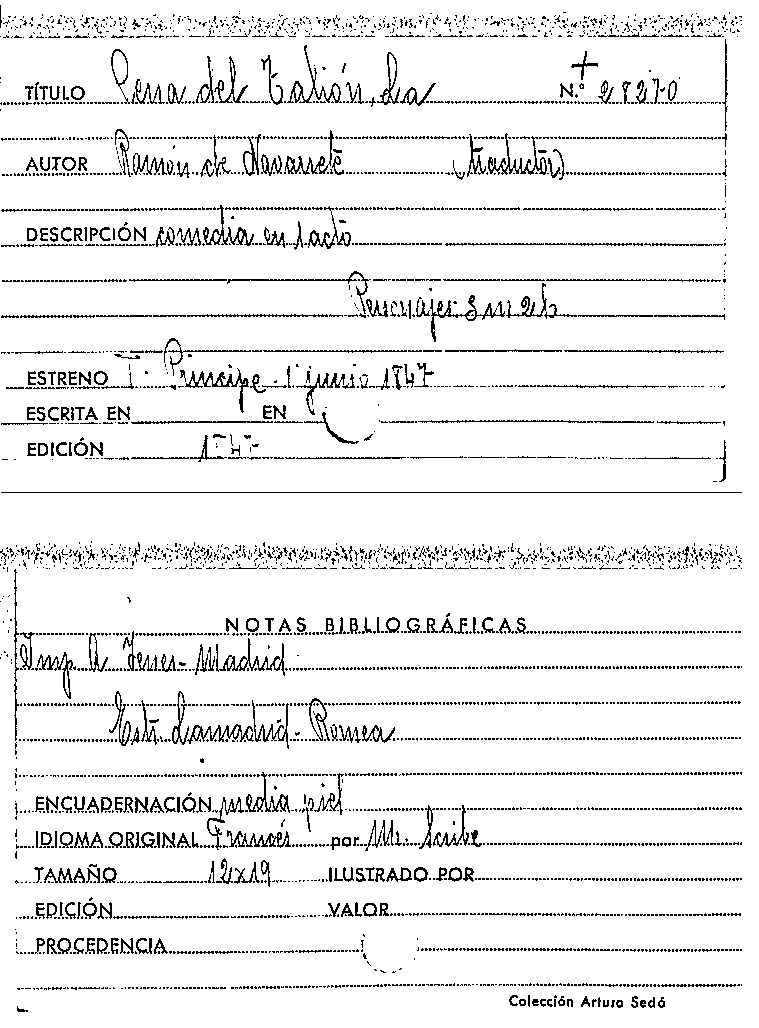 TÍTULO Pena del Talión, La N.º 28270
AUTOR Ramón de Navarrete (traductor)
DESCRIPCIÓN comedia en 1 acto
Personajes 3 m 2 h
ESTRENO T. Principe - 1 junio 1847
ESCRITA EN EN
EDICIÓN 1847
NOTAS BIBLIOGRÁFICAS
Imp A Yenes - Madrid
Estr. Lamadrid - Romea
ENCUADERNACIÓN media piel
IDIOMA ORIGINAL Francés por Mr. Scribe
TAMAÑO 12x19 ILUSTRADO POR
EDICIÓN VALOR
PROCEDENCIA
Colección Arturo Sedó